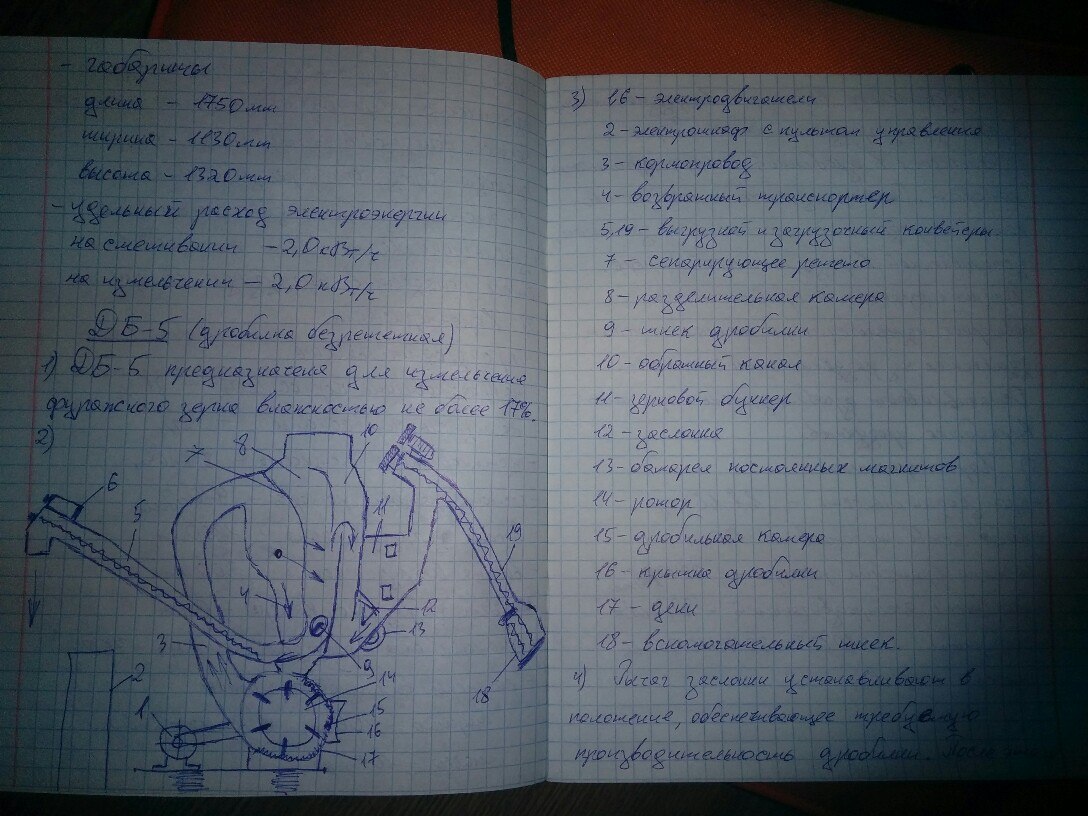 - габариты
длина - 1750мм
ширина - 1130мм
высота - 1320мм
- удельный расход электроэнергии
на смешивании - 2,0 кВт/ч
на измельчении - 2,0 кВт/ч
ДБ-5 (дробилка безрешетная)
1) ДБ-5 предназначена для измельчения
фуражного зерна влажностью не более 17%.
2)
7
8
10
6
5
11
19
4
12
13
3
9
18
2
14
1
15
16
17
3) 1,6 - электродвигатели
2 - электрошкаф с пультом управления
3 - кормопровод
4 - возвратный транспортер
5,19 - выгрузной и загрузочный конвейеры
7 - сепарирующее решето
8 - разделительная камера
9 - шнек дробилки
10 - обратный канал
11 - зерновой бункер
12 - заслонка
13 - батарея постоянных магнитов
14 - ротор
15 - дробильная камера
16 - крышка дробилки
17 - деки
18 - вспомогательный шнек.
4) Рычаг заслонки устанавливают в
положение, обеспечивающее требуемую
производительность дробилки.